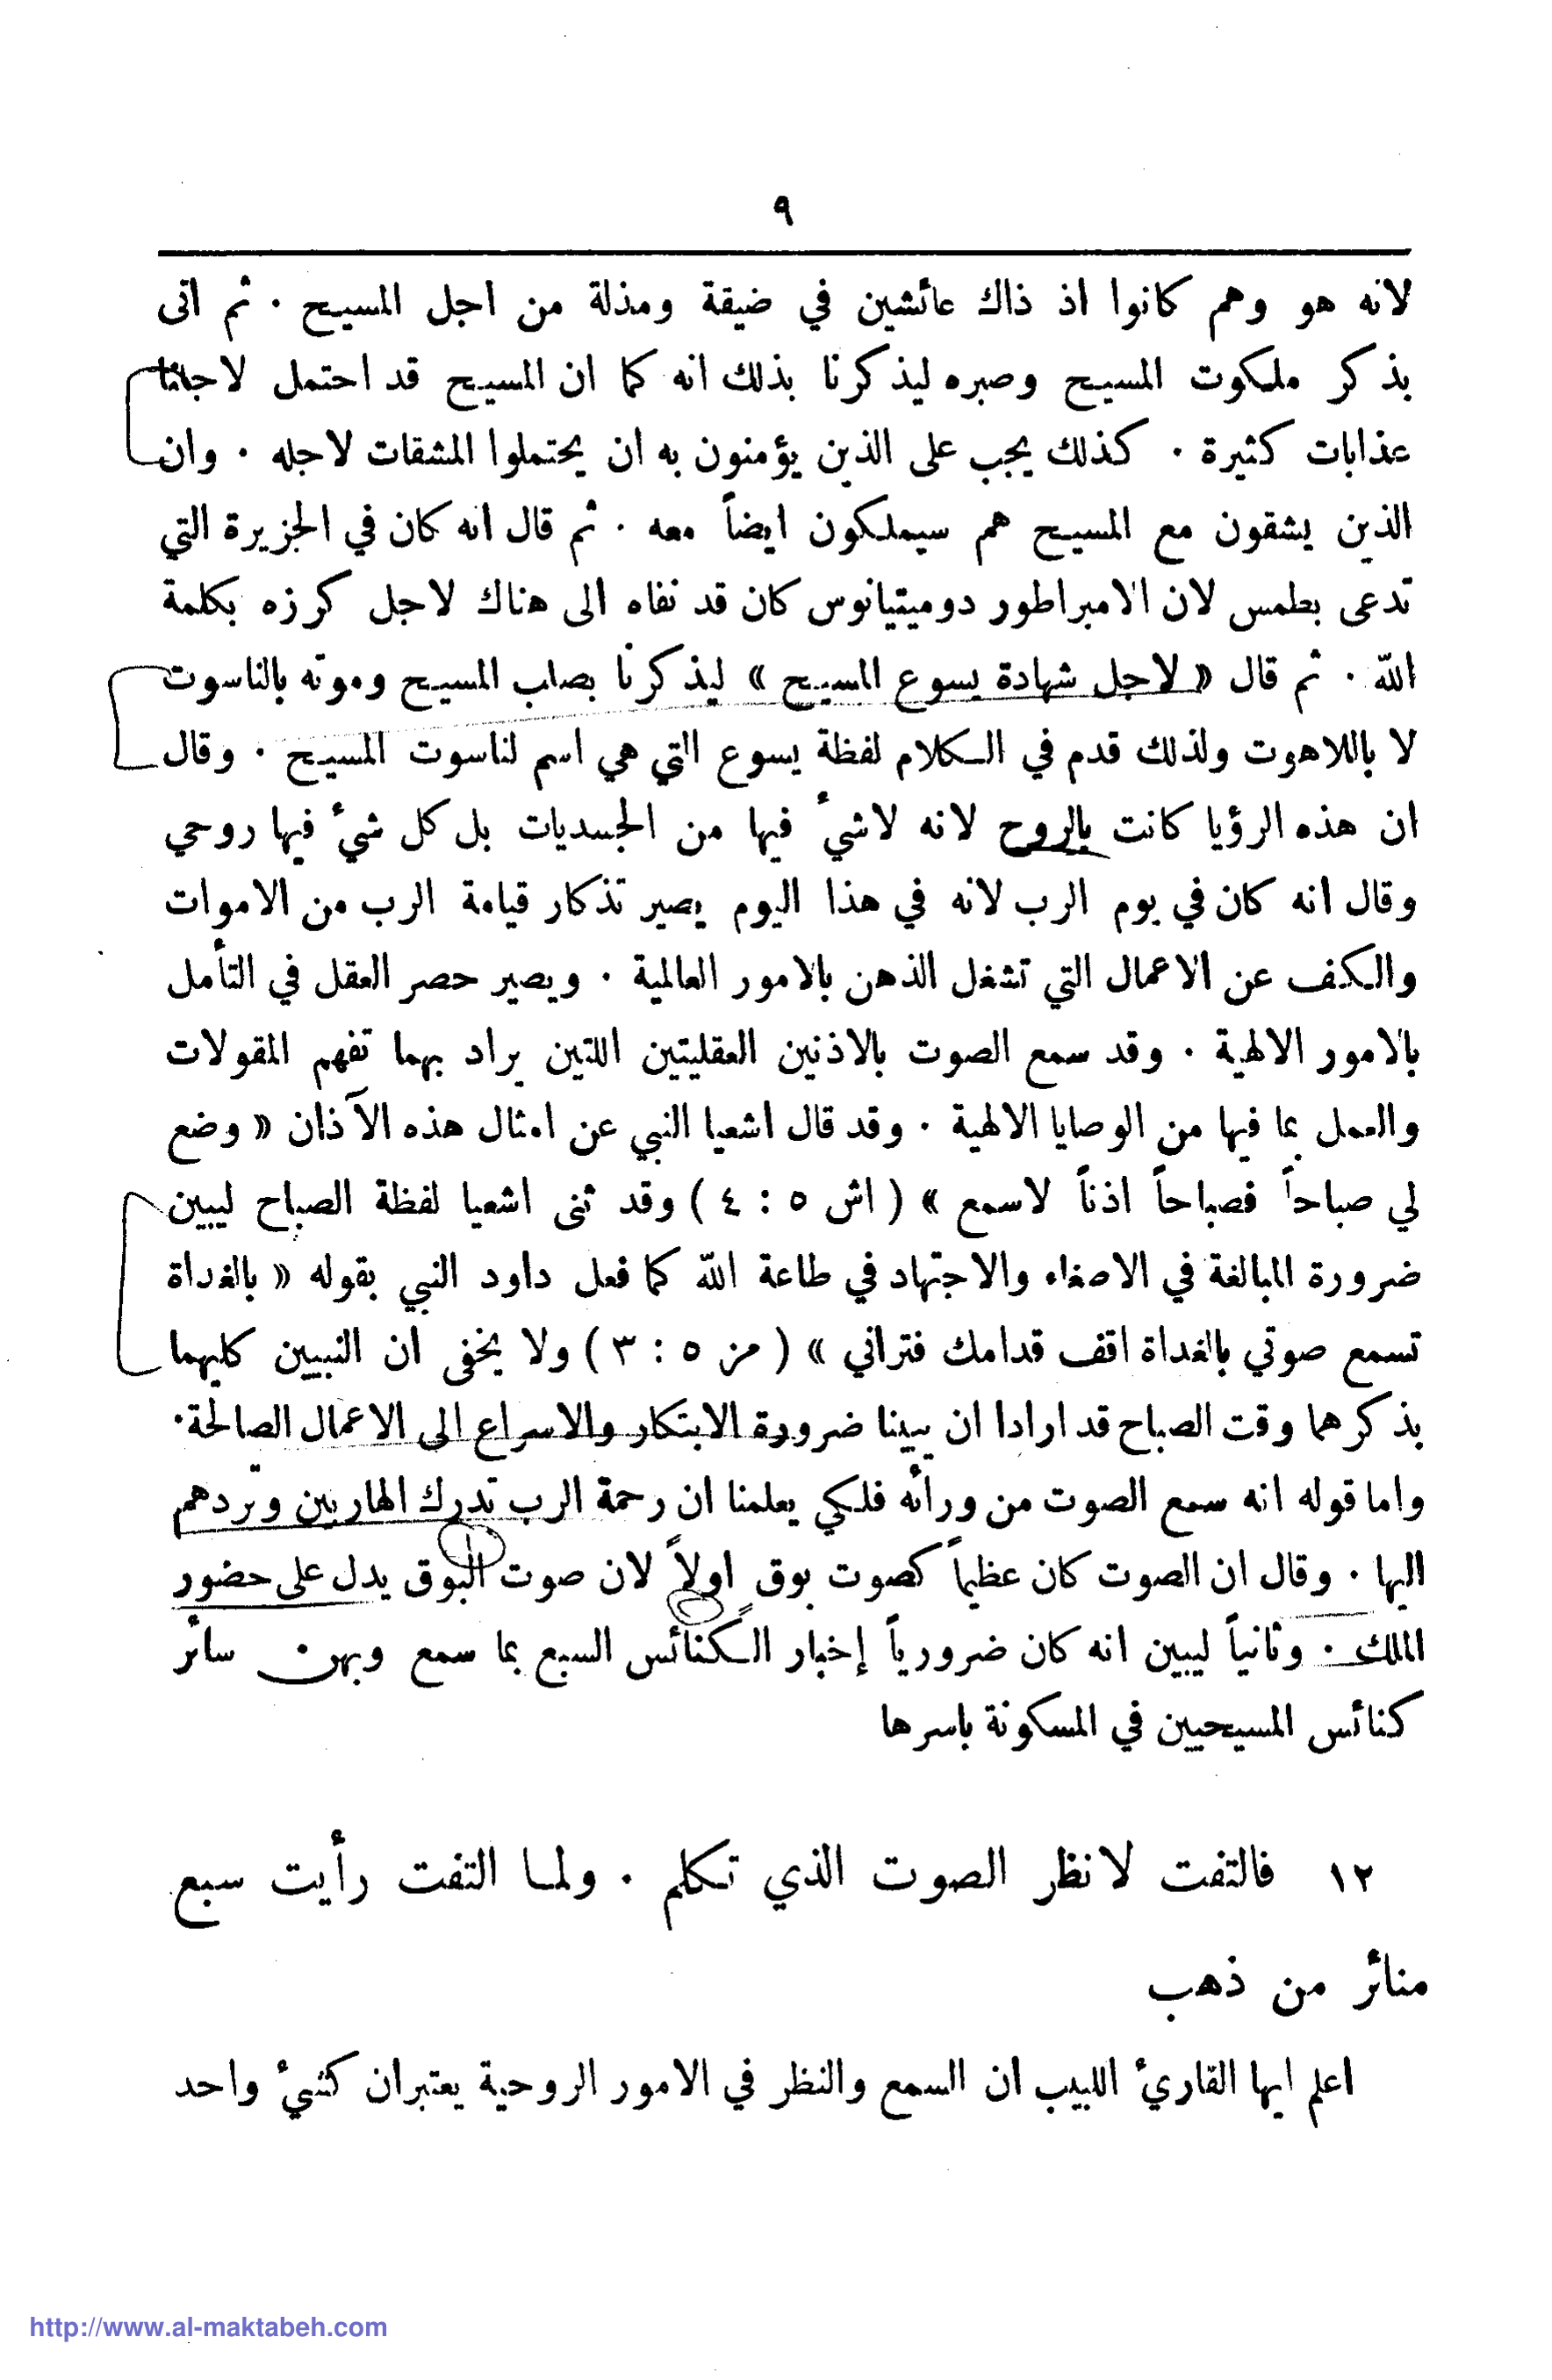 ٩
لانه هو وهم كانوا اذ ذاك عائشين في ضيقة ومذلة من اجل المسيح ٠ ثم اتى
بذكر ملكوت المسيح وصبره ليذكرنا بذلك انه كما ان المسيح قد احتمل لاجلنا
عذابات كثيرة ٠ كذلك يجب على الذين يؤمنون به ان يحتملوا المشقات لاجله ٠ وان
الذين يشقون مع المسيح هم سيملكون ايضاً معه ٠ ثم قال انه كان في الجزيرة التي
تدعى بطمس لان الامبراطور دوميتيانوس كان قد نفاه الى هناك لاجل كرزه بكلمة
الله ٠ ثم قال « لاجل شهادة يسوع المسيح » ليذكرنا بصلب المسيح وموته بالناسوت
لا باللاهوت ولذلك قدم في الكلام لفظة يسوع التي هي اسم لناسوت المسيح ٠ وقال
ان هذه الرؤيا كانت بالروح لانه لاشيءٌ فيها من الجسديات بل كل شيءٍ فيها روحي
وقال انه كان في يوم الرب لانه في هذا اليوم يصير تذكار قيامة الرب من الاموات
والكف عن الاعمال التي تشغل الذهن بالامور العالمية ٠ ويصير حصر العقل في التأمل
بالامور الالهية ٠ وقد سمع الصوت بالاذنين العقليتين اللتين يراد بهما تفهم المقولات
والعمل بما فيها من الوصايا الالهية ٠ وقد قال اشعيا النبي عن امثال هذه الآذان « وضع
لي صباحاً فصباحاً اذناً لاسمع » ( اش ٥ : ٤ ) وقد ثنى اشعيا لفظة الصباح ليبين
ضرورة المبالغة في الاصغاء والاجتهاد في طاعة الله كما فعل داود النبي بقوله « بالغداة
تسمع صوتي بالغداة اقف قدامك فتراني » ( مز ٥ : ٣ ) ولا يخفى ان النبيين كليهما
بذكرهما وقت الصباح قد ارادا ان يبينا ضرورة الابتكار والاسراع الى الاعمال الصالحة٠
واما قوله انه سمع الصوت من ورأئه فلكي يعلمنا ان رحمة الرب تدرك الهاربين وتردهم
اليها ٠ وقال ان الصوت كان عظيماً كصوت بوق اولاً لان صوت البوق يدل على حضور
الملك ٠ وثانياً ليبين انه كان ضرورياً إخبار الكنائس السبع بما سمع وبهن سائر
كنائس المسيحيين في المسكونة باسرها
١٢ فالتفت لانظر الصوت الذي تكلم ٠ ولما التفت رأيت سبع
منائر من ذهب
اعلم ايها القارئ اللبيب ان السمع والنظر في الامور الروحية يعتبران كشيءٍ واحد
http://www.al-maktabeh.com